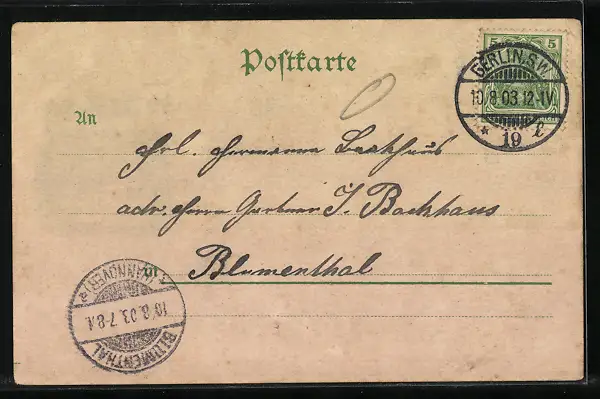 Postkarte
5 5
BERLIN, S.W.
10.8.03.12-1V.
* 19 l
An
Frl. Hermann Backhaus
adr. Herrn J. Backhaus
in Blumenthal
(HANNOVER) *
10.8.03.7-8.N.
BLUMENTHAL